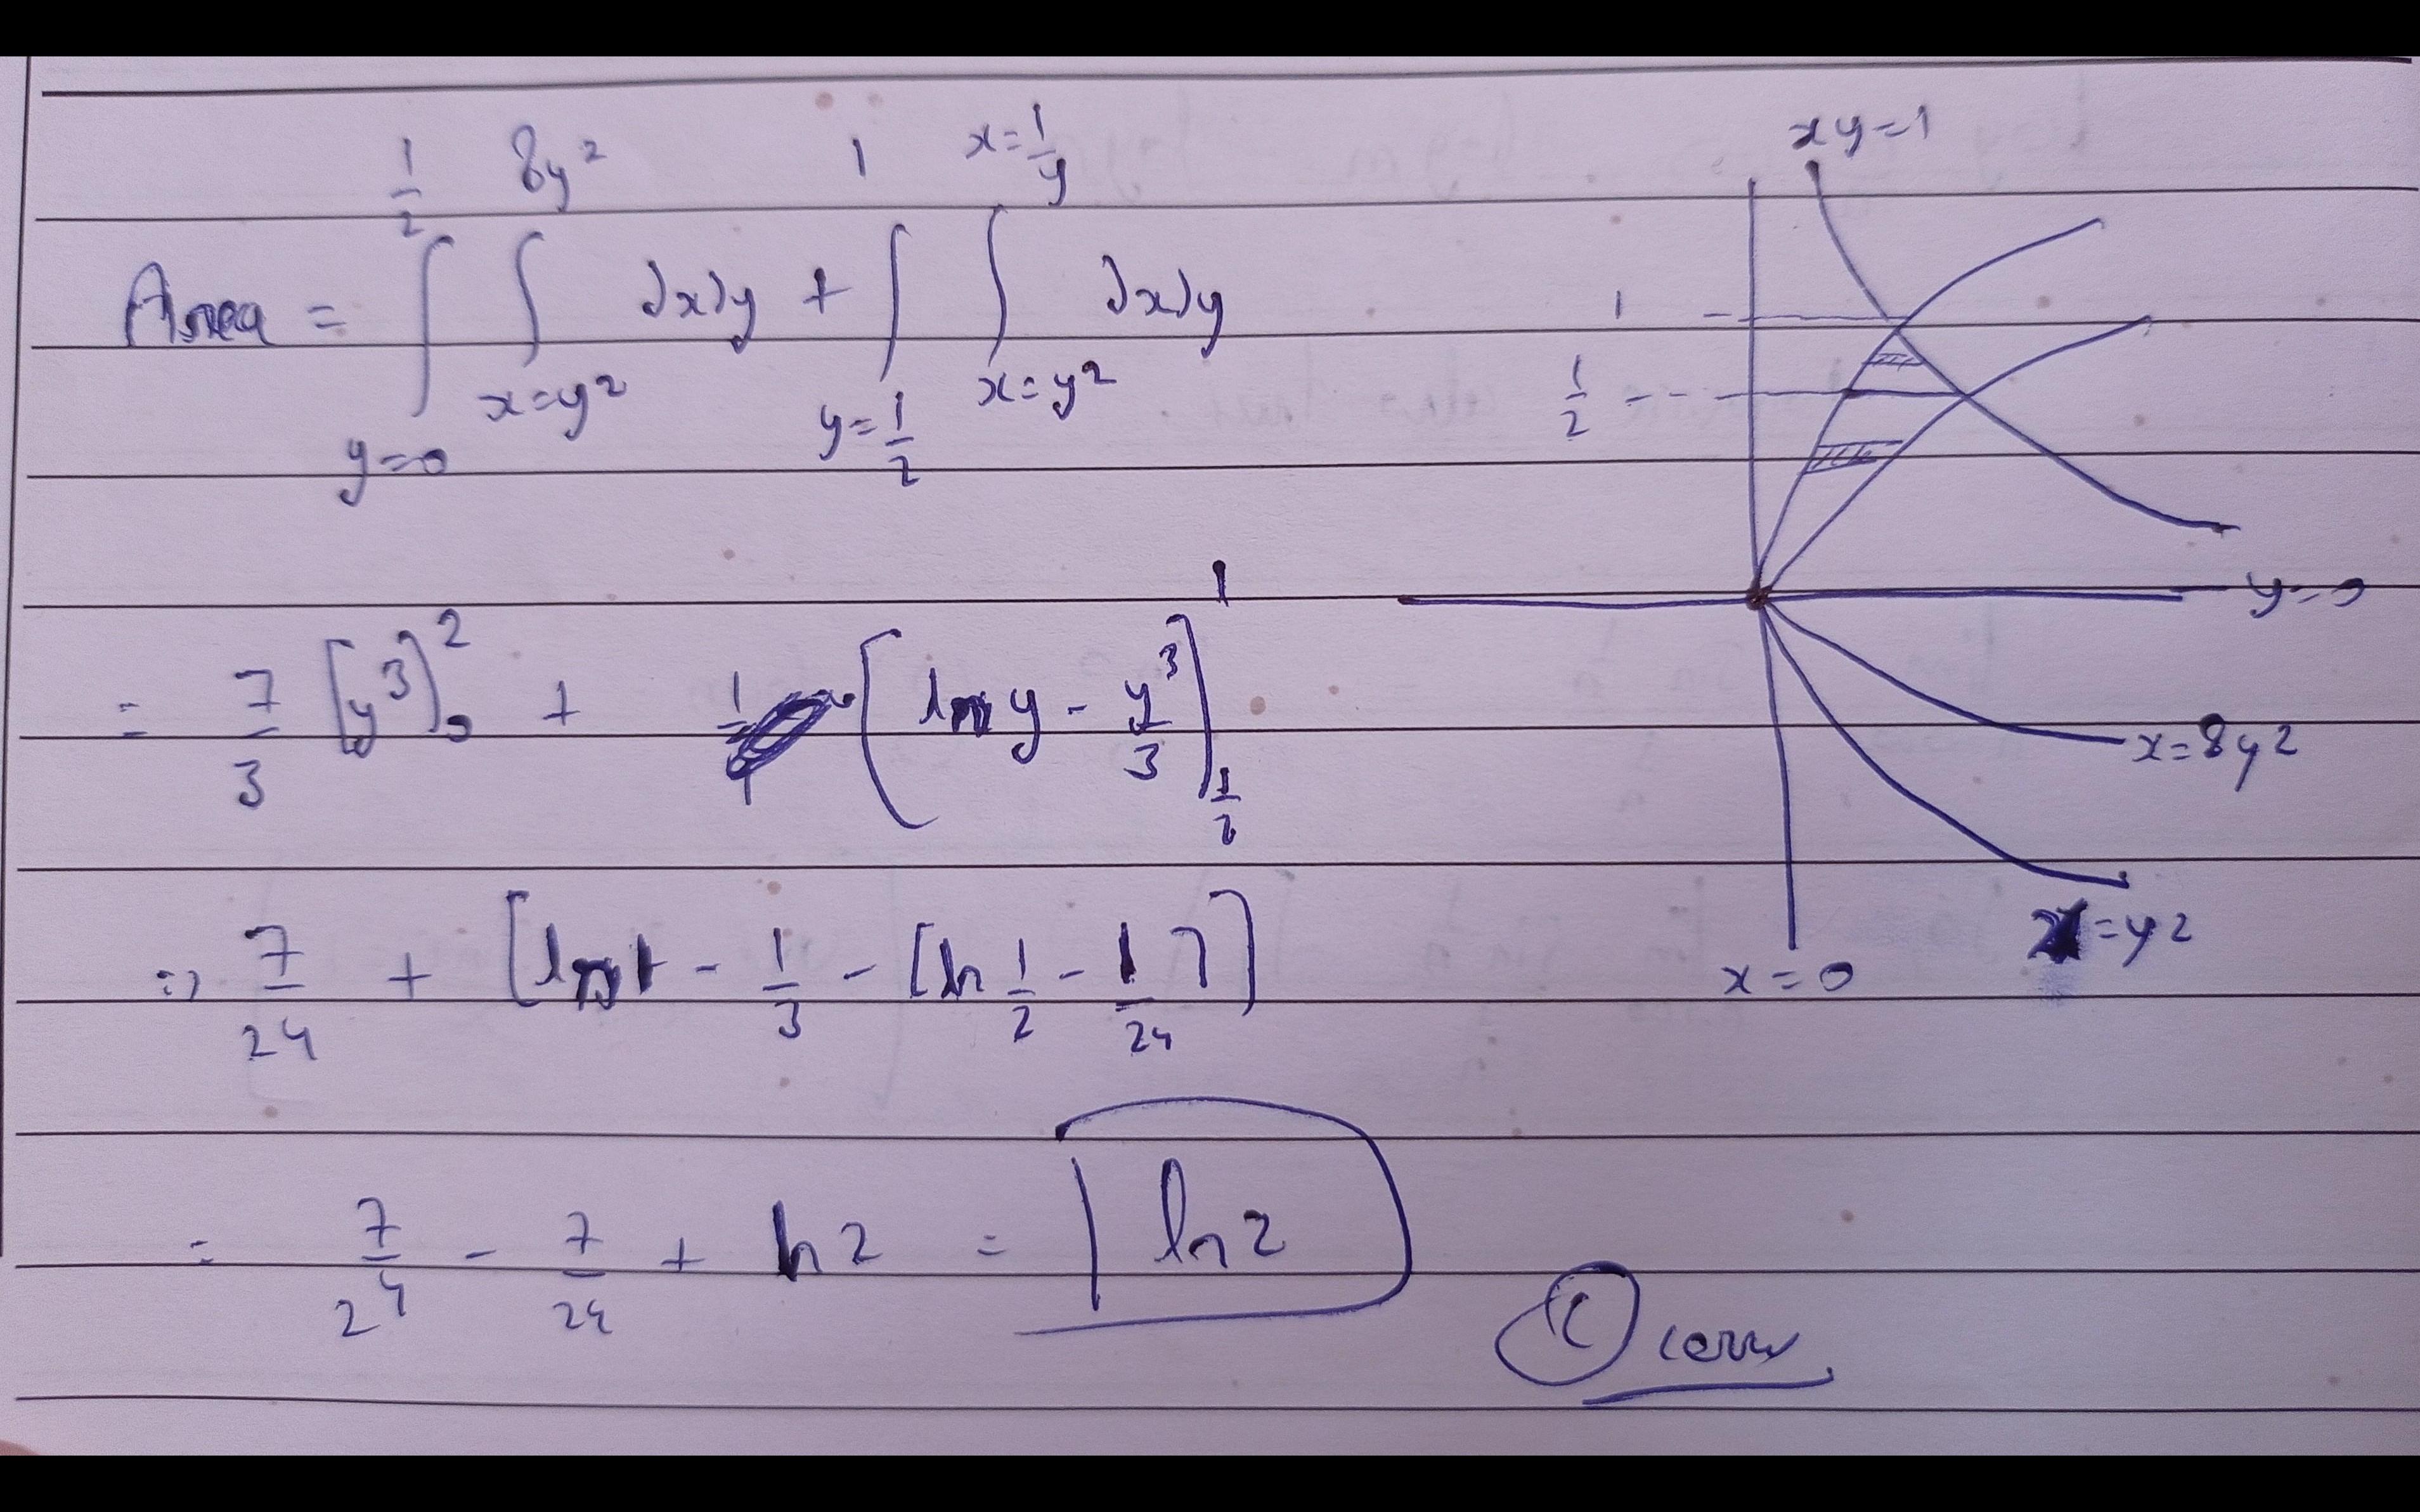 Area = ∫_{y=0}^{1/2} ∫_{x=y²}^{8y²} dxdy + ∫_{y=1/2}^{1} ∫_{x=y²}^{x=1/y} dxdy
= 7/3 [y³]₀² + [ln y - y³/3]_{1/2}^{1}
=> 7/24 + [ln 1 - 1/3 - [ln 1/2 - 1/24]]
= 7/24 - 7/24 + ln 2 = ln 2
xy=1
1
1/2
y=0
x=8y²
x=y²
x=0
(C)